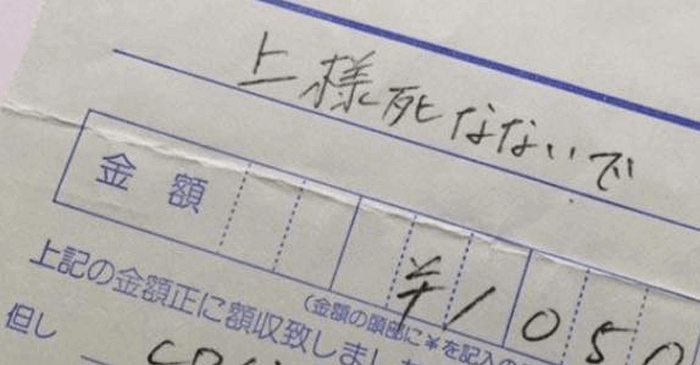 上様死なないで
金額 ¥1050
(金額の頭部に¥を記入の
上記の金額正に額収致しまし
但し